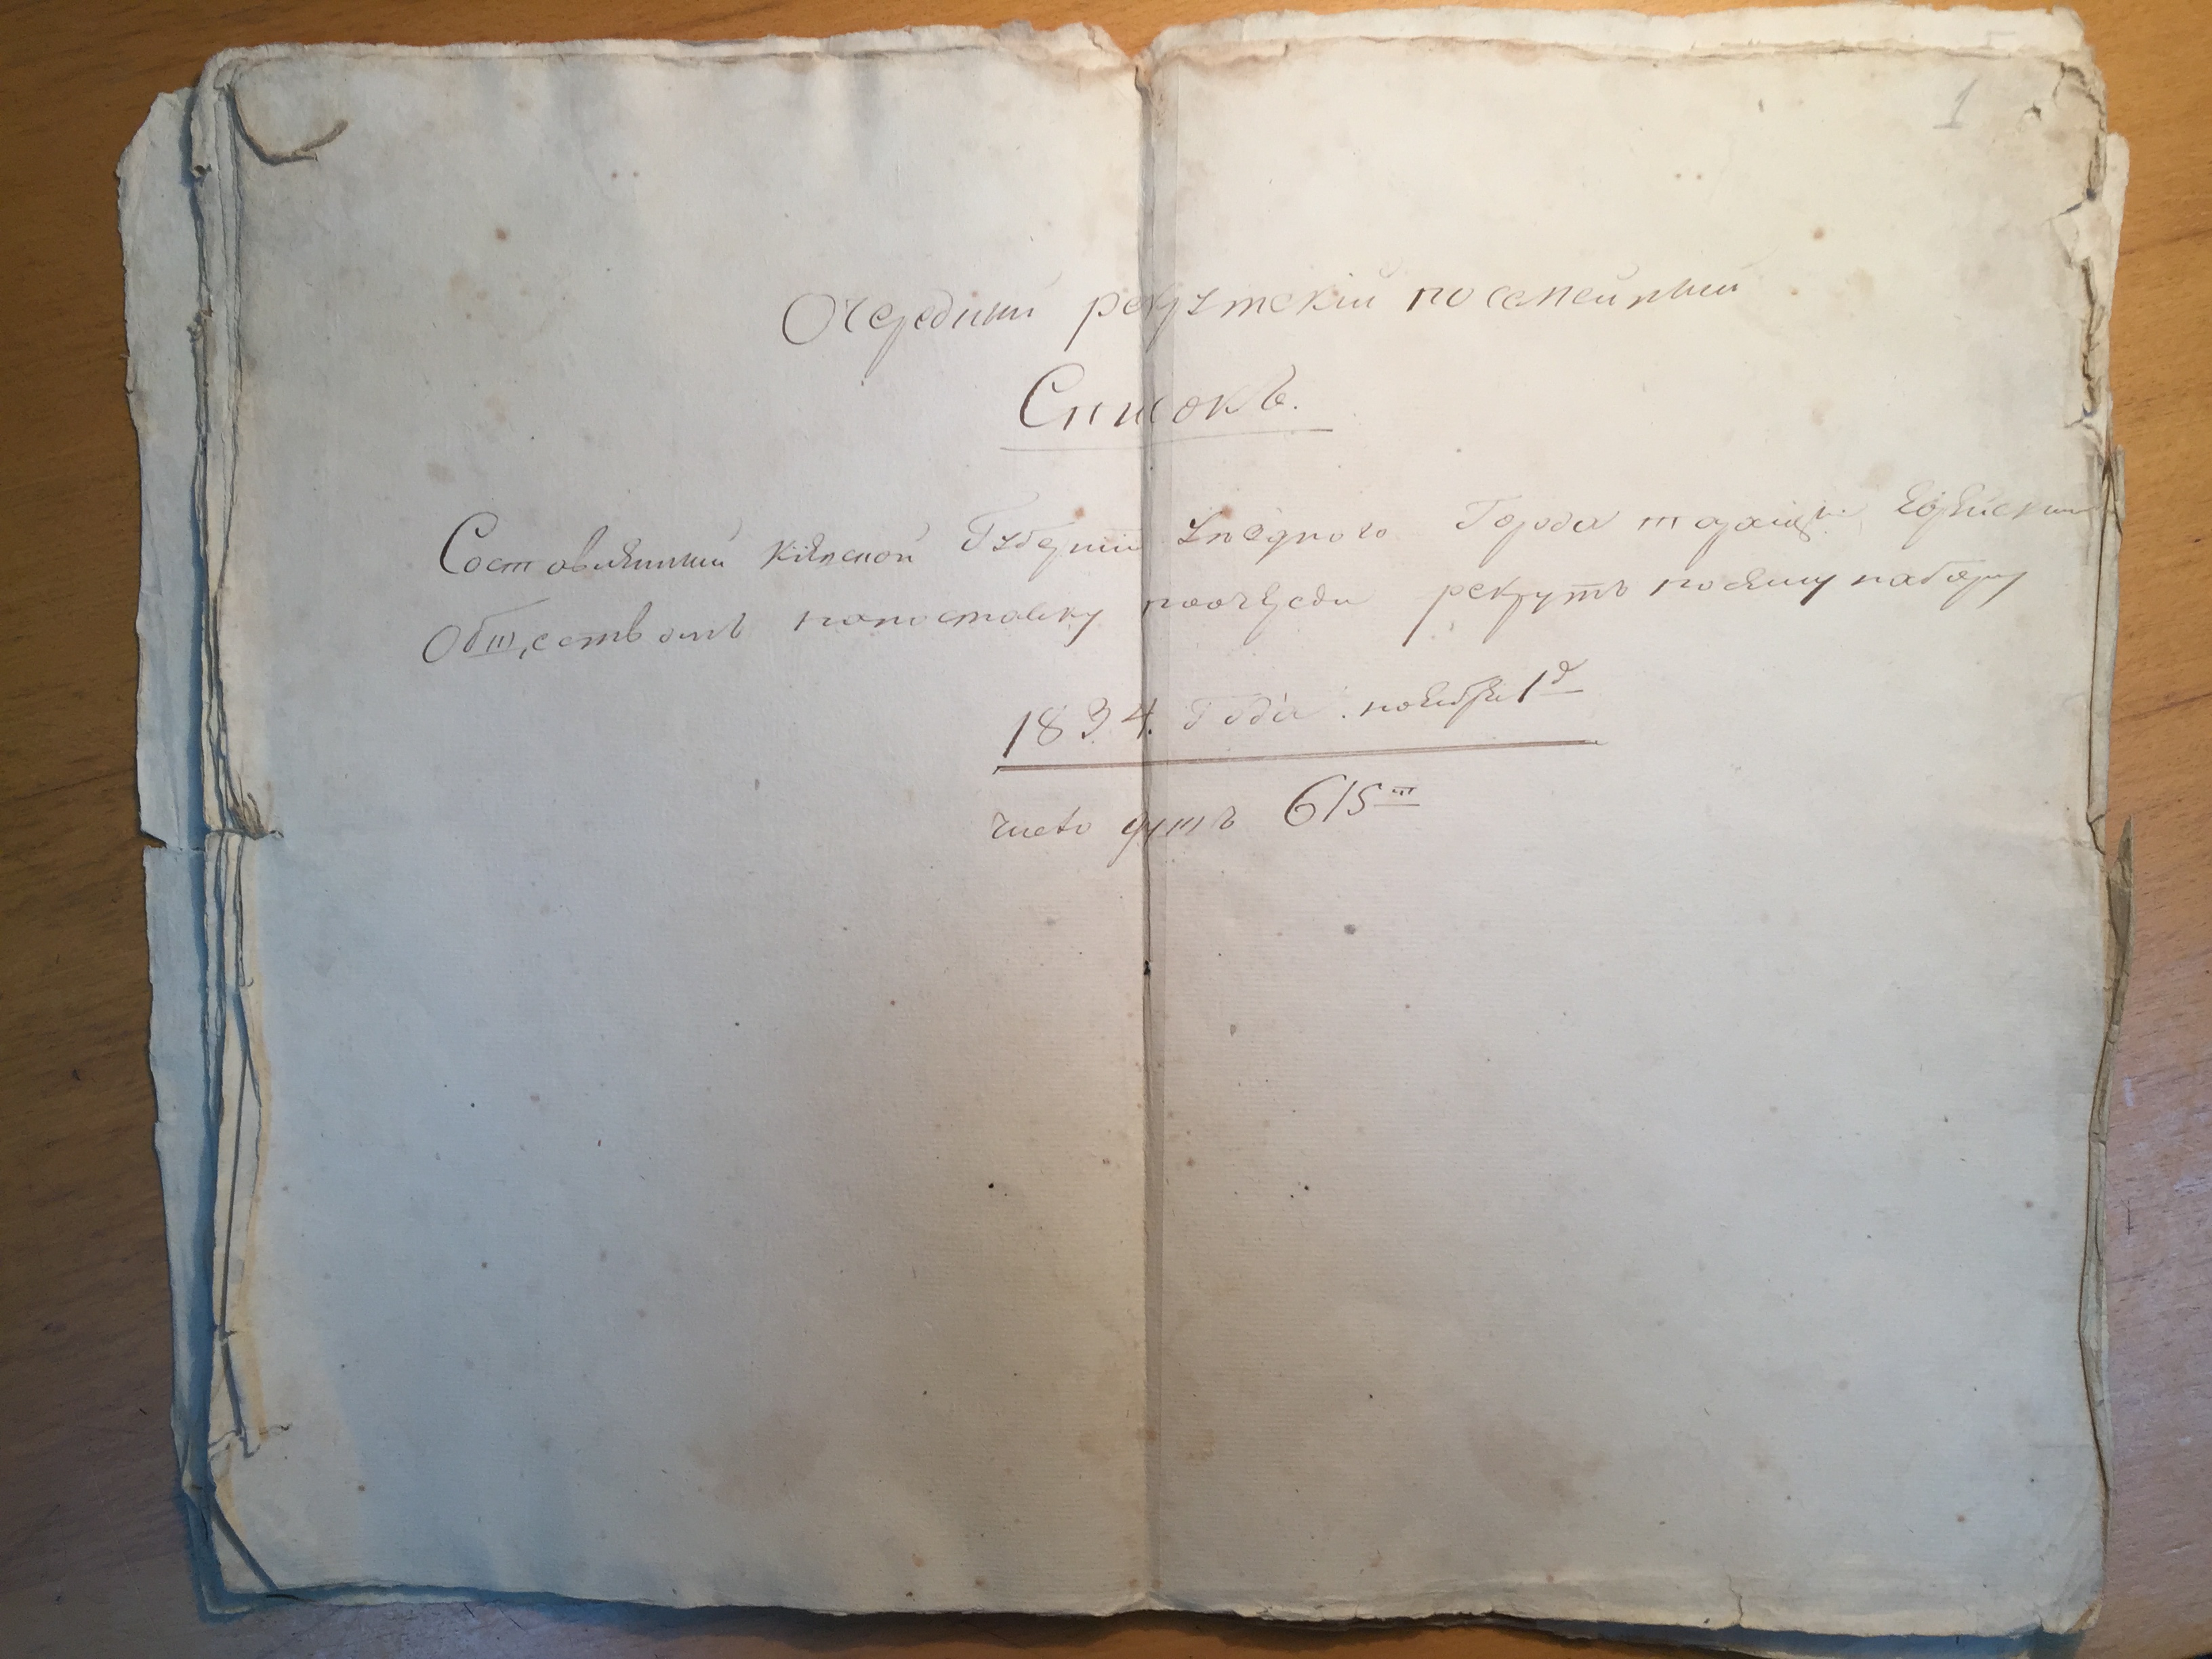 1
Очередный рекрутскій посемейный
Списокъ.
Составленный Кіевской Губерніи уезднаго Города Таращи Еврейскимъ
Обществомъ напоставку поочереди рекрутъ по набору
1834. Года. ноября 1 д
число душъ 615